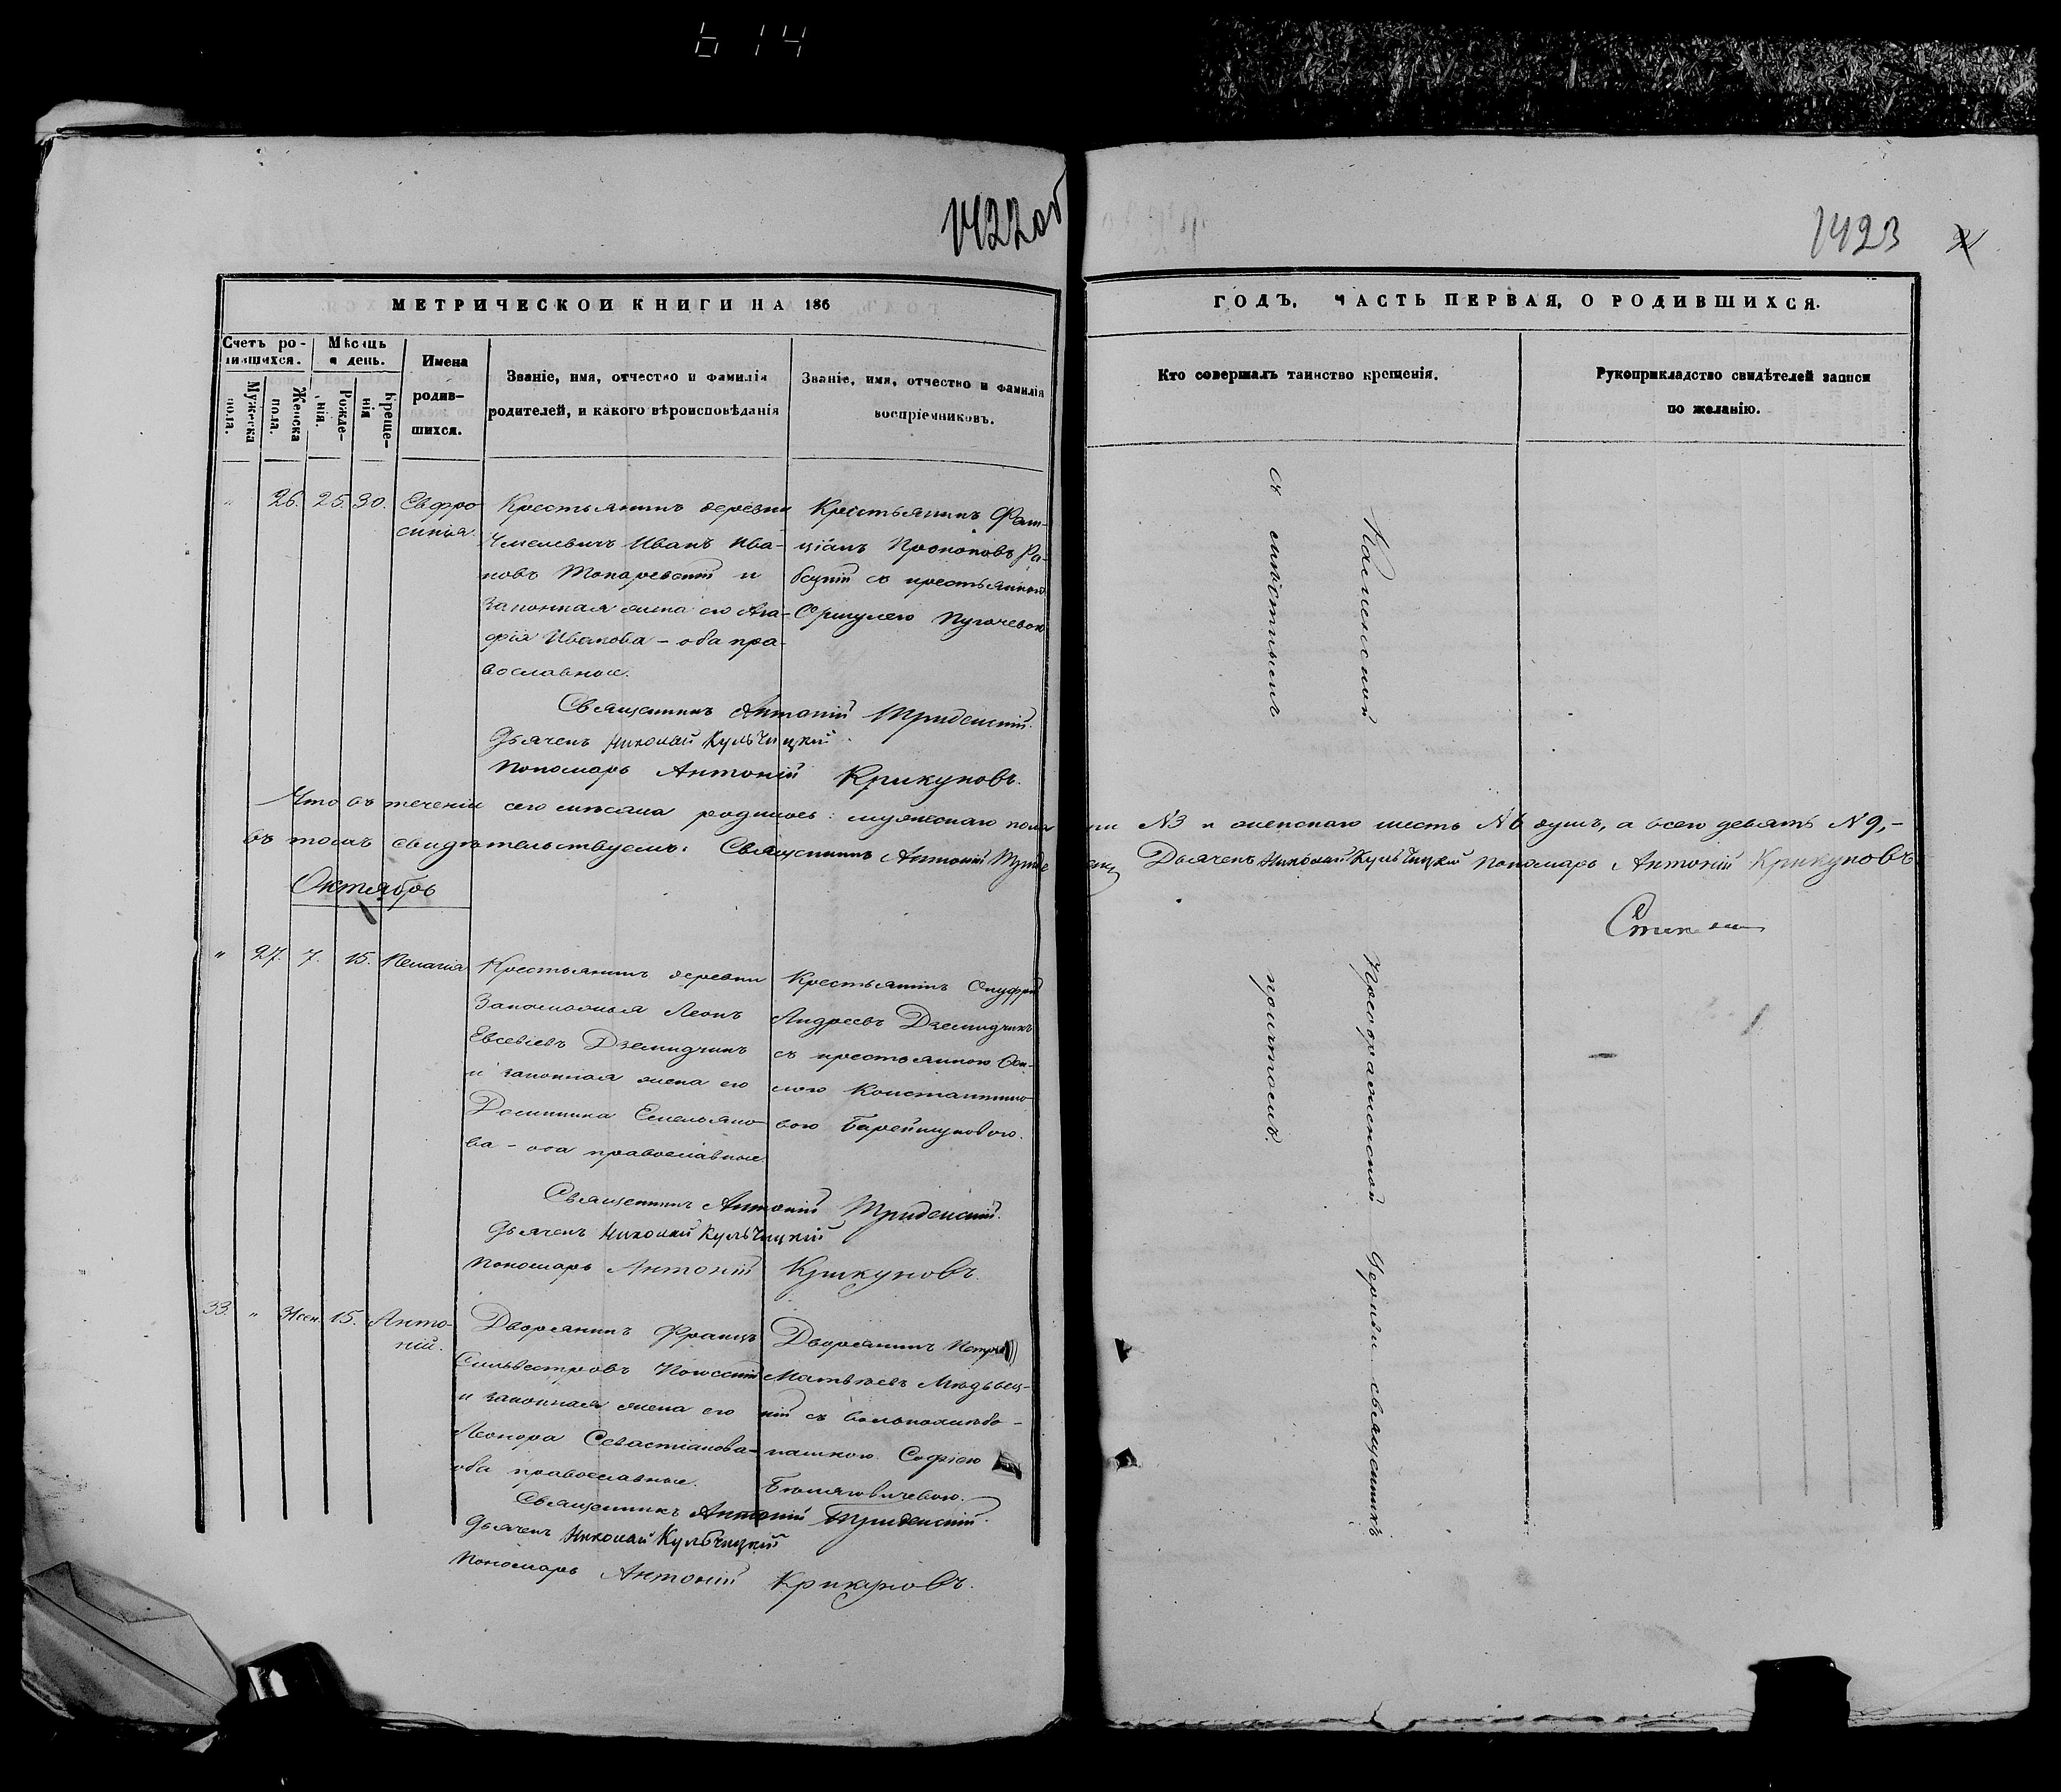 614
1422об
1423
МЕТРИЧЕСКОИ КНИГИ НА 186
ГОДЪ, ЧАСТЬ ПЕРВАЯ, О РОДИВШИХСЯ.
Счетъ ро-
дившихся.
Мѣсяць
и день.
Мужеска
пола.
Женска
пола.
Рожде-
нія.
Креще-
нія
Имена
родив-
шихся.
Званіе, имя, отчество и фамилія
родителей, и какого вѣроисповѣданія
Званіе, имя, отчество и фамилія
воспріемниковъ.
Кто совершалъ таинство крещенія.
Рукоприкладство свидѣтелей записи
по желанію.
" 26. 25. 30. Евфро-
синія.
Крестьянинъ деревни
Иванъ Ива-
новъ Токаревскій и
законная жена его Ага-
фія Иванова - оба пра-
вославные.
Крестьянинъ
Прокоповъ
съ крестьянкою
Пугачевою
Священникъ Антоній Триденскій.
Дьячекъ Николай Кульчицкій.
Пономарь Антоній Крикуновъ.
Что въ теченіи сего мѣсяца родилось: мужескаго пола три №3 и женскаго шесть №6 душъ, а всего девять №9,-
въ томъ свидѣтельствуемъ: Священникъ Антоній Дьячекъ Николай Кульчицкій Пономарь Антоній Крикуновъ
Октябрь
" 27. 7. 15. Пелагія
Крестьянинъ деревни
Леонъ
Евсевіевъ Дземидчикъ
и законная жена его
Домникія Емельяно-
ва - оба православные
Крестьянинъ Онуфрій
Андреевъ Дземидчикъ
съ крестьянкою
Константино-
вою
Священникъ Антоній Триденскій.
Дьячекъ Николай Кульчицкій
Пономарь Антоній Крикуновъ.
33. " 15. Анто-
ній.
Дворянинъ Францъ
Сильвестровъ
и законная жена его
Леонора Севастіанова-
оба православные.
Дворянинъ Петръ
Матвѣевъ
съ
Софіею
Священникъ Антоній Триденскій.
Дьячекъ Николай Кульчицкій
Пономарь Антоній Крикуновъ.
съ мѣстнымъ
причтомъ.
Преображенской Церкви священникъ